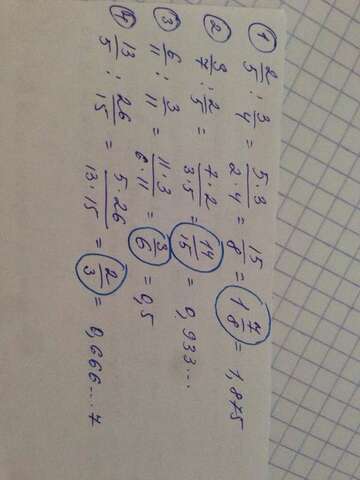 ① 2/5 : 3/4 = 5·3/2·4 = 15/8 = 1 7/8 = 1,875
② 3/7 : 2/5 = 7·2/3·5 = 14/15 = 0,933...
③ 6/11 : 3/11 = 11·3/6·11 = 3/6 = 0,5
④ 13/5 : 26/15 = 5·26/13·15 = 2/3 = 0,666...7